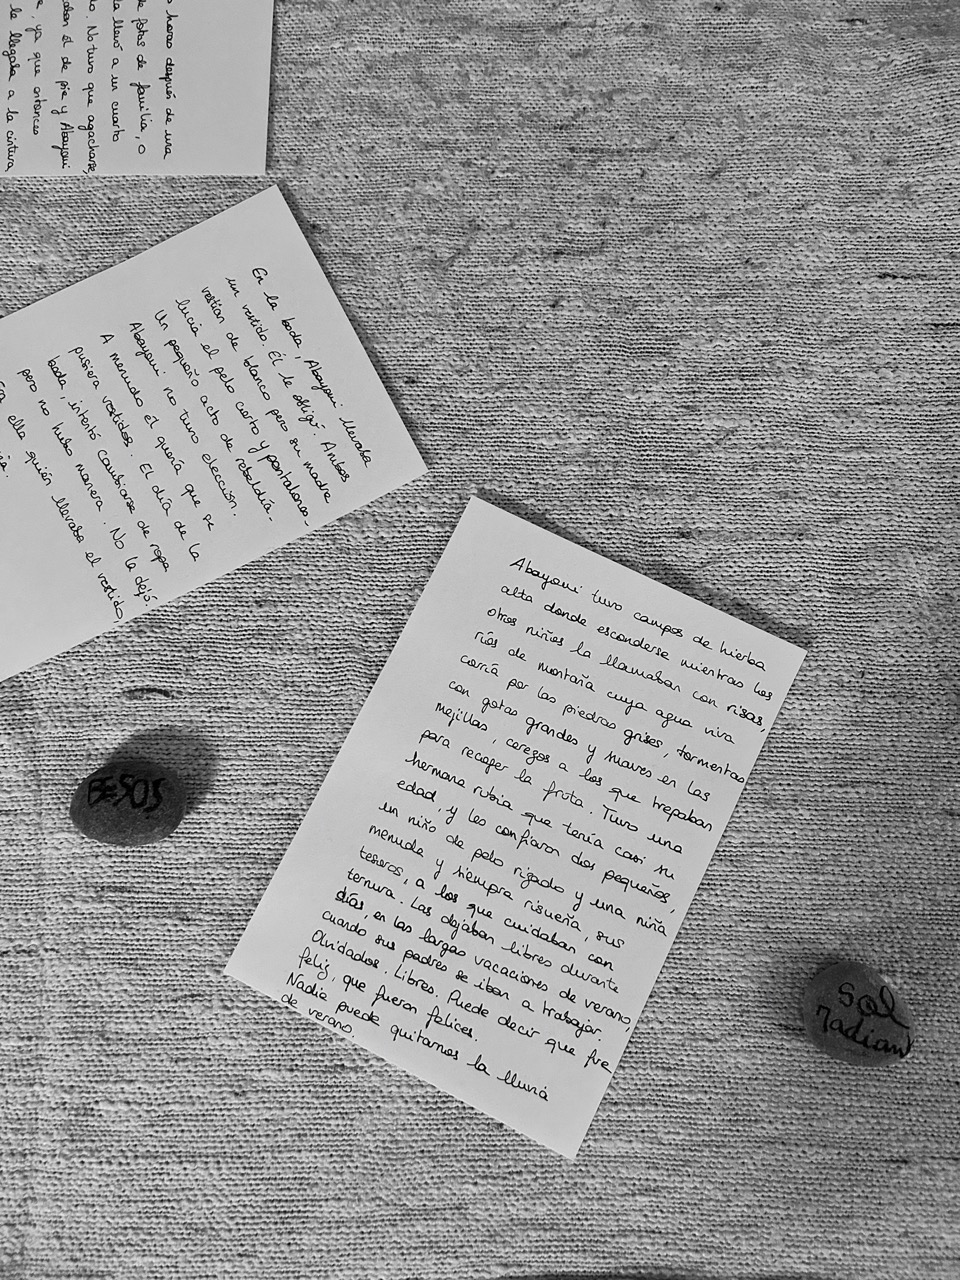 hora después de una
fotos de familia, o
la llevó a un cuarto
No tuvo que agacharse,
él de pie y Abayomi
ya que entonces
le llegaba a la cintura
En la boda, Abayomi llevaba
un vestido. Él le obligó. Ambos
vestían de blanco pero su madre
lucía el pelo corto y pantalones.
Un pequeño acto de rebeldía.
Abayomi no tuvo elección.
A menudo él quería que se
pusiera vestidos. El día de la
boda, intentó cambiarse de ropa
pero no hubo manera. No la dejó.
ella quién llevaba el vestido
Abayomi tuvo campos de hierba
alta donde esconderse mientras los
otros niños la llamaban con risas,
ríos de montaña cuya agua viva
corría por las piedras grises, tormentas
con gotas grandes y suaves en las
mejillas, cerezos a los que trepaban
para recoger la fruta. Tuvo una
hermana rubia que tenía casi su
edad, y les confiaron dos pequeños,
un niño de pelo rizado y una niña
menuda y siempre risueña, sus
tesoros, a los que cuidaban con
ternura. Las dejaban libres durante
días, en las largas vacaciones de verano,
cuando sus padres se iban a trabajar.
Olvidados. Libres. Puede decir que fue
feliz, que fueron felices.
Nadie puede quitarnos la lluvia
de verano.
BESOS
Sol
radian